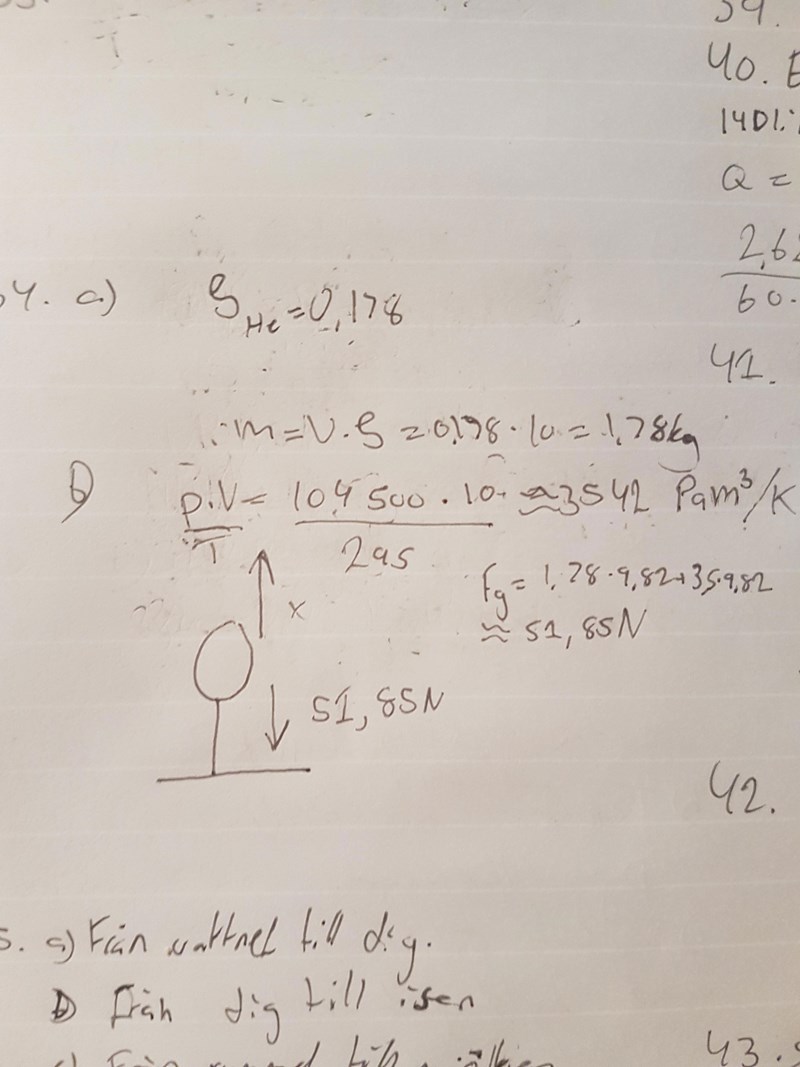 39.
40. E
140l:
Q =
2,6
60.
34. a) ρHe = 0,178
41.
∴ m = V · ρ = 0,178 · 10 = 1,78kg
b) p·V/T = 104 500 · 10/295 ≈ 3542 Pam³/K
Fg = 1,78 · 9,82 + 3,5 · 9,82
≈ 51,85N
x
51,85N
42.
5. a) Från vattnet till dig.
b) Från dig till isen
43.